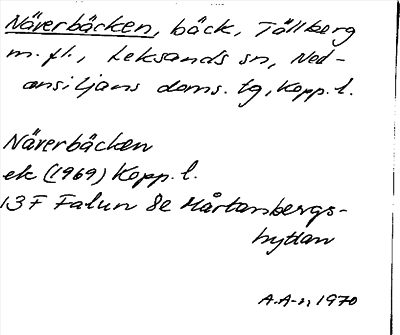 Näverbäcken, bäck, Tällberg
m. fl., Leksands sn, Ned-
ansiljans doms. tg, Kopp. l.
Näverbäcken
ek (1969) Kopp. l.
13F Falun 8e Mårtanbergs-
hyttan
A.A-n 1970